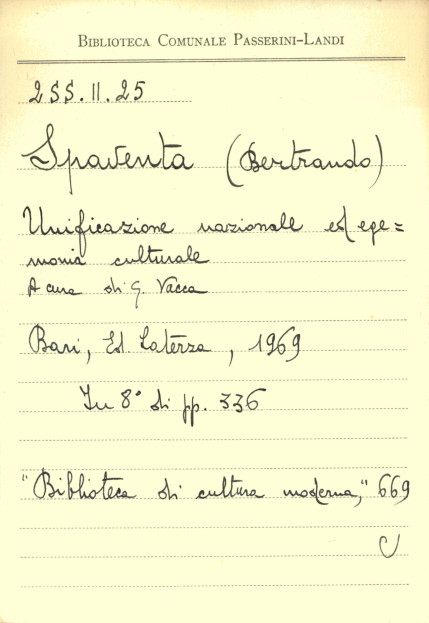 BIBLIOTECA COMUNALE PASSERINI-LANDI
2SS.II.25
Spaventa (Bertrando)
Unificazione nazionale ed ege=
monia culturale
A cura di G. Vacca
Bari, Ed. Laterza, 1969
In 8° di pp. 336
"Biblioteca di cultura moderna," 669